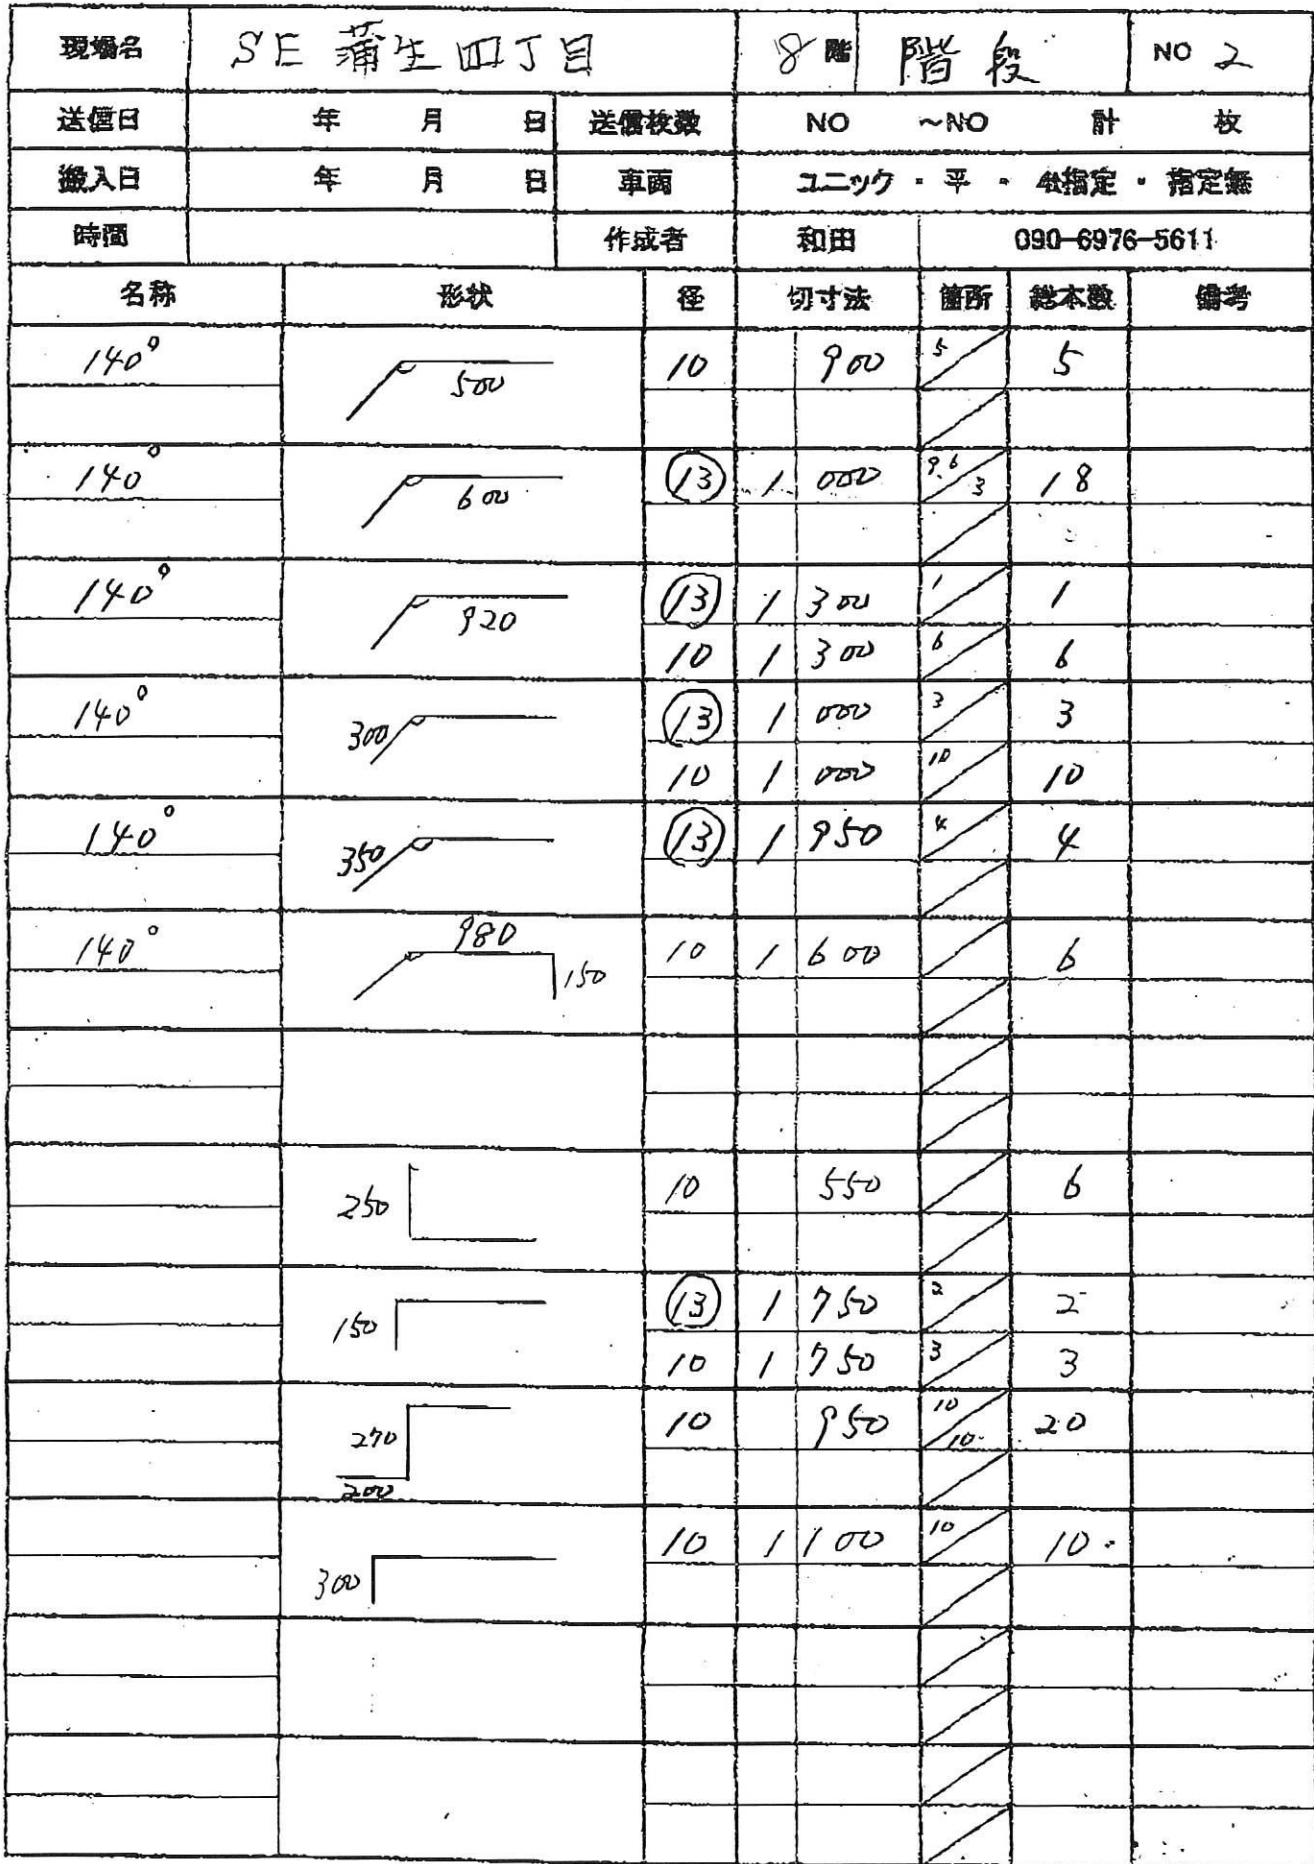 現場名 SE 蒲生四丁目 8 階 階段 NO 2
送信日 年 月 日 送信枚数 NO ～NO 計 枚
搬入日 年 月 日 車両 ユニック ・ 平 ・ 4t指定 ・ 指定無
時間 作成者 和田 090-6976-5611
名称 形状 径 切寸法 箇所 総本数 備考
140° 500 10 900 5 5
140° 600 13 1 000 9.6 3 18
140° 920 13 1 300 1 1
10 1 300 6 6
140° 300 13 1 000 3 3
10 1 000 10 10
140° 350 13 1 950 4 4
140° 980 150 10 1 600 6
250 10 550 6
150 13 1 750 2 2
10 1 750 3 3
270 200 10 950 10 10 20
300 10 1 100 10 10